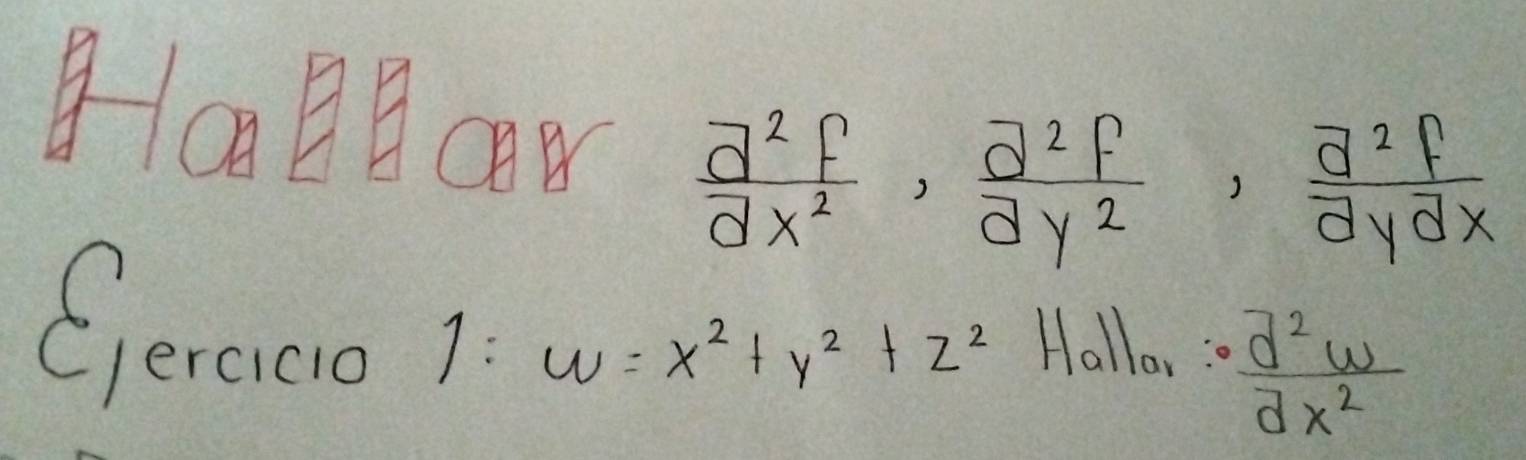 Hallar ∂²f/∂x² , ∂²f/∂y² , ∂²f/∂y∂x
Ejercicio 1: w = x² + y² + z² Hallar : ∂²w/∂x²